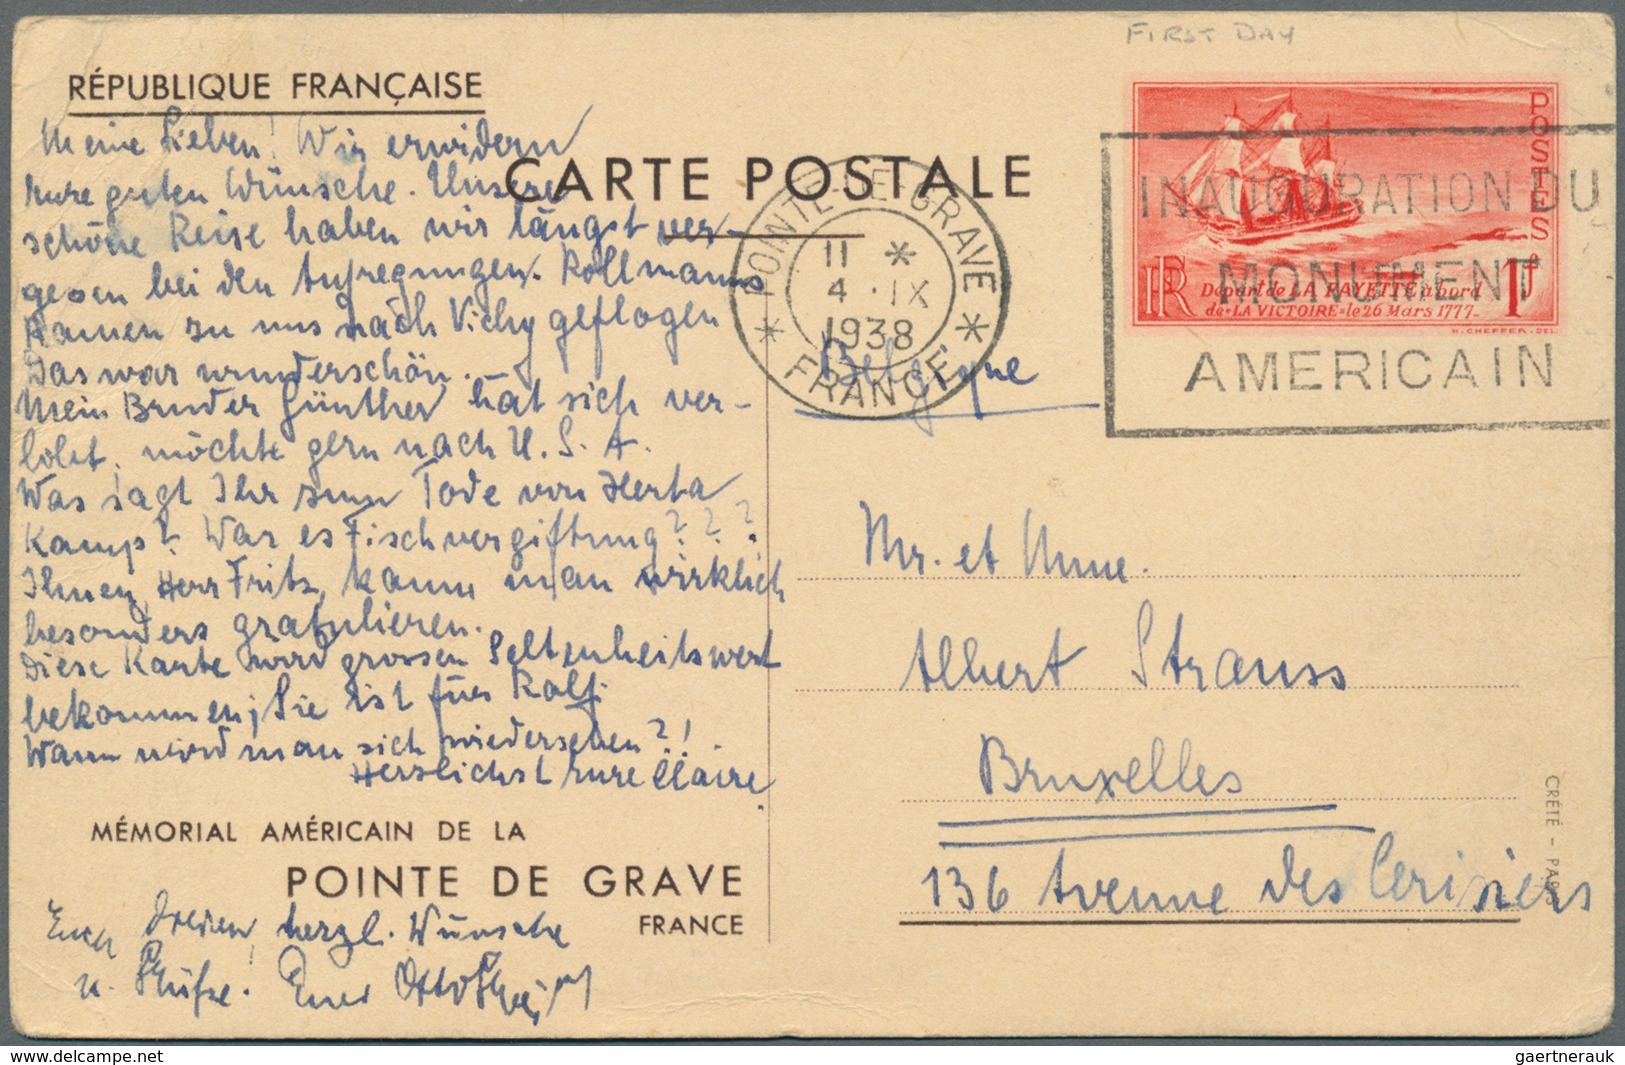 FIRST DAY
RÉPUBLIQUE FRANÇAISE
CARTE POSTALE
Meine Lieben! Wir erwidern
Eure guten Wünsche. Unsere
schöne Reise haben wir längst ver-
gessen bei den Aufregungen. Rollmanns
kamen zu uns nach Vichy geflogen
Das war wunderschön.
Mein Bruder Günther hat sich ver-
lobt, möchte gern nach U.S.A.
Was sagt Ihr zum Tode von Herta
Kamp? War es Fischvergiftung???
Ihnen, Herr Fritz, kann man wirklich
besonders gratulieren.
Diese Karte wird grossen Seltenheitswert
bekommen; Sie ist für Rolf.
Wann wird man sich wiedersehen?!
Herzlichst Eure Claire.
MÉMORIAL AMÉRICAIN DE LA
POINTE DE GRAVE
FRANCE
Euch Dreien, herzl. Wünsche
u. Grüsse. Euer Otto
POINTE-DE-GRAVE
11 *
4 · IX
1938
* FRANCE *
POSTES
RF
Départ de LA FAYETTE à bord
de "LA VICTOIRE" le 26 Mars 1777-
1f
H. CHEFFER. DEL.
INAUGURATION DU
MONUMENT
AMERICAIN
Belgique
Mr. et Mme.
Albert Strauss
Bruxelles
136 Avenue des Cerisiers
CRÉTÉ - PARIS
delcampe.net
gaertnerauk